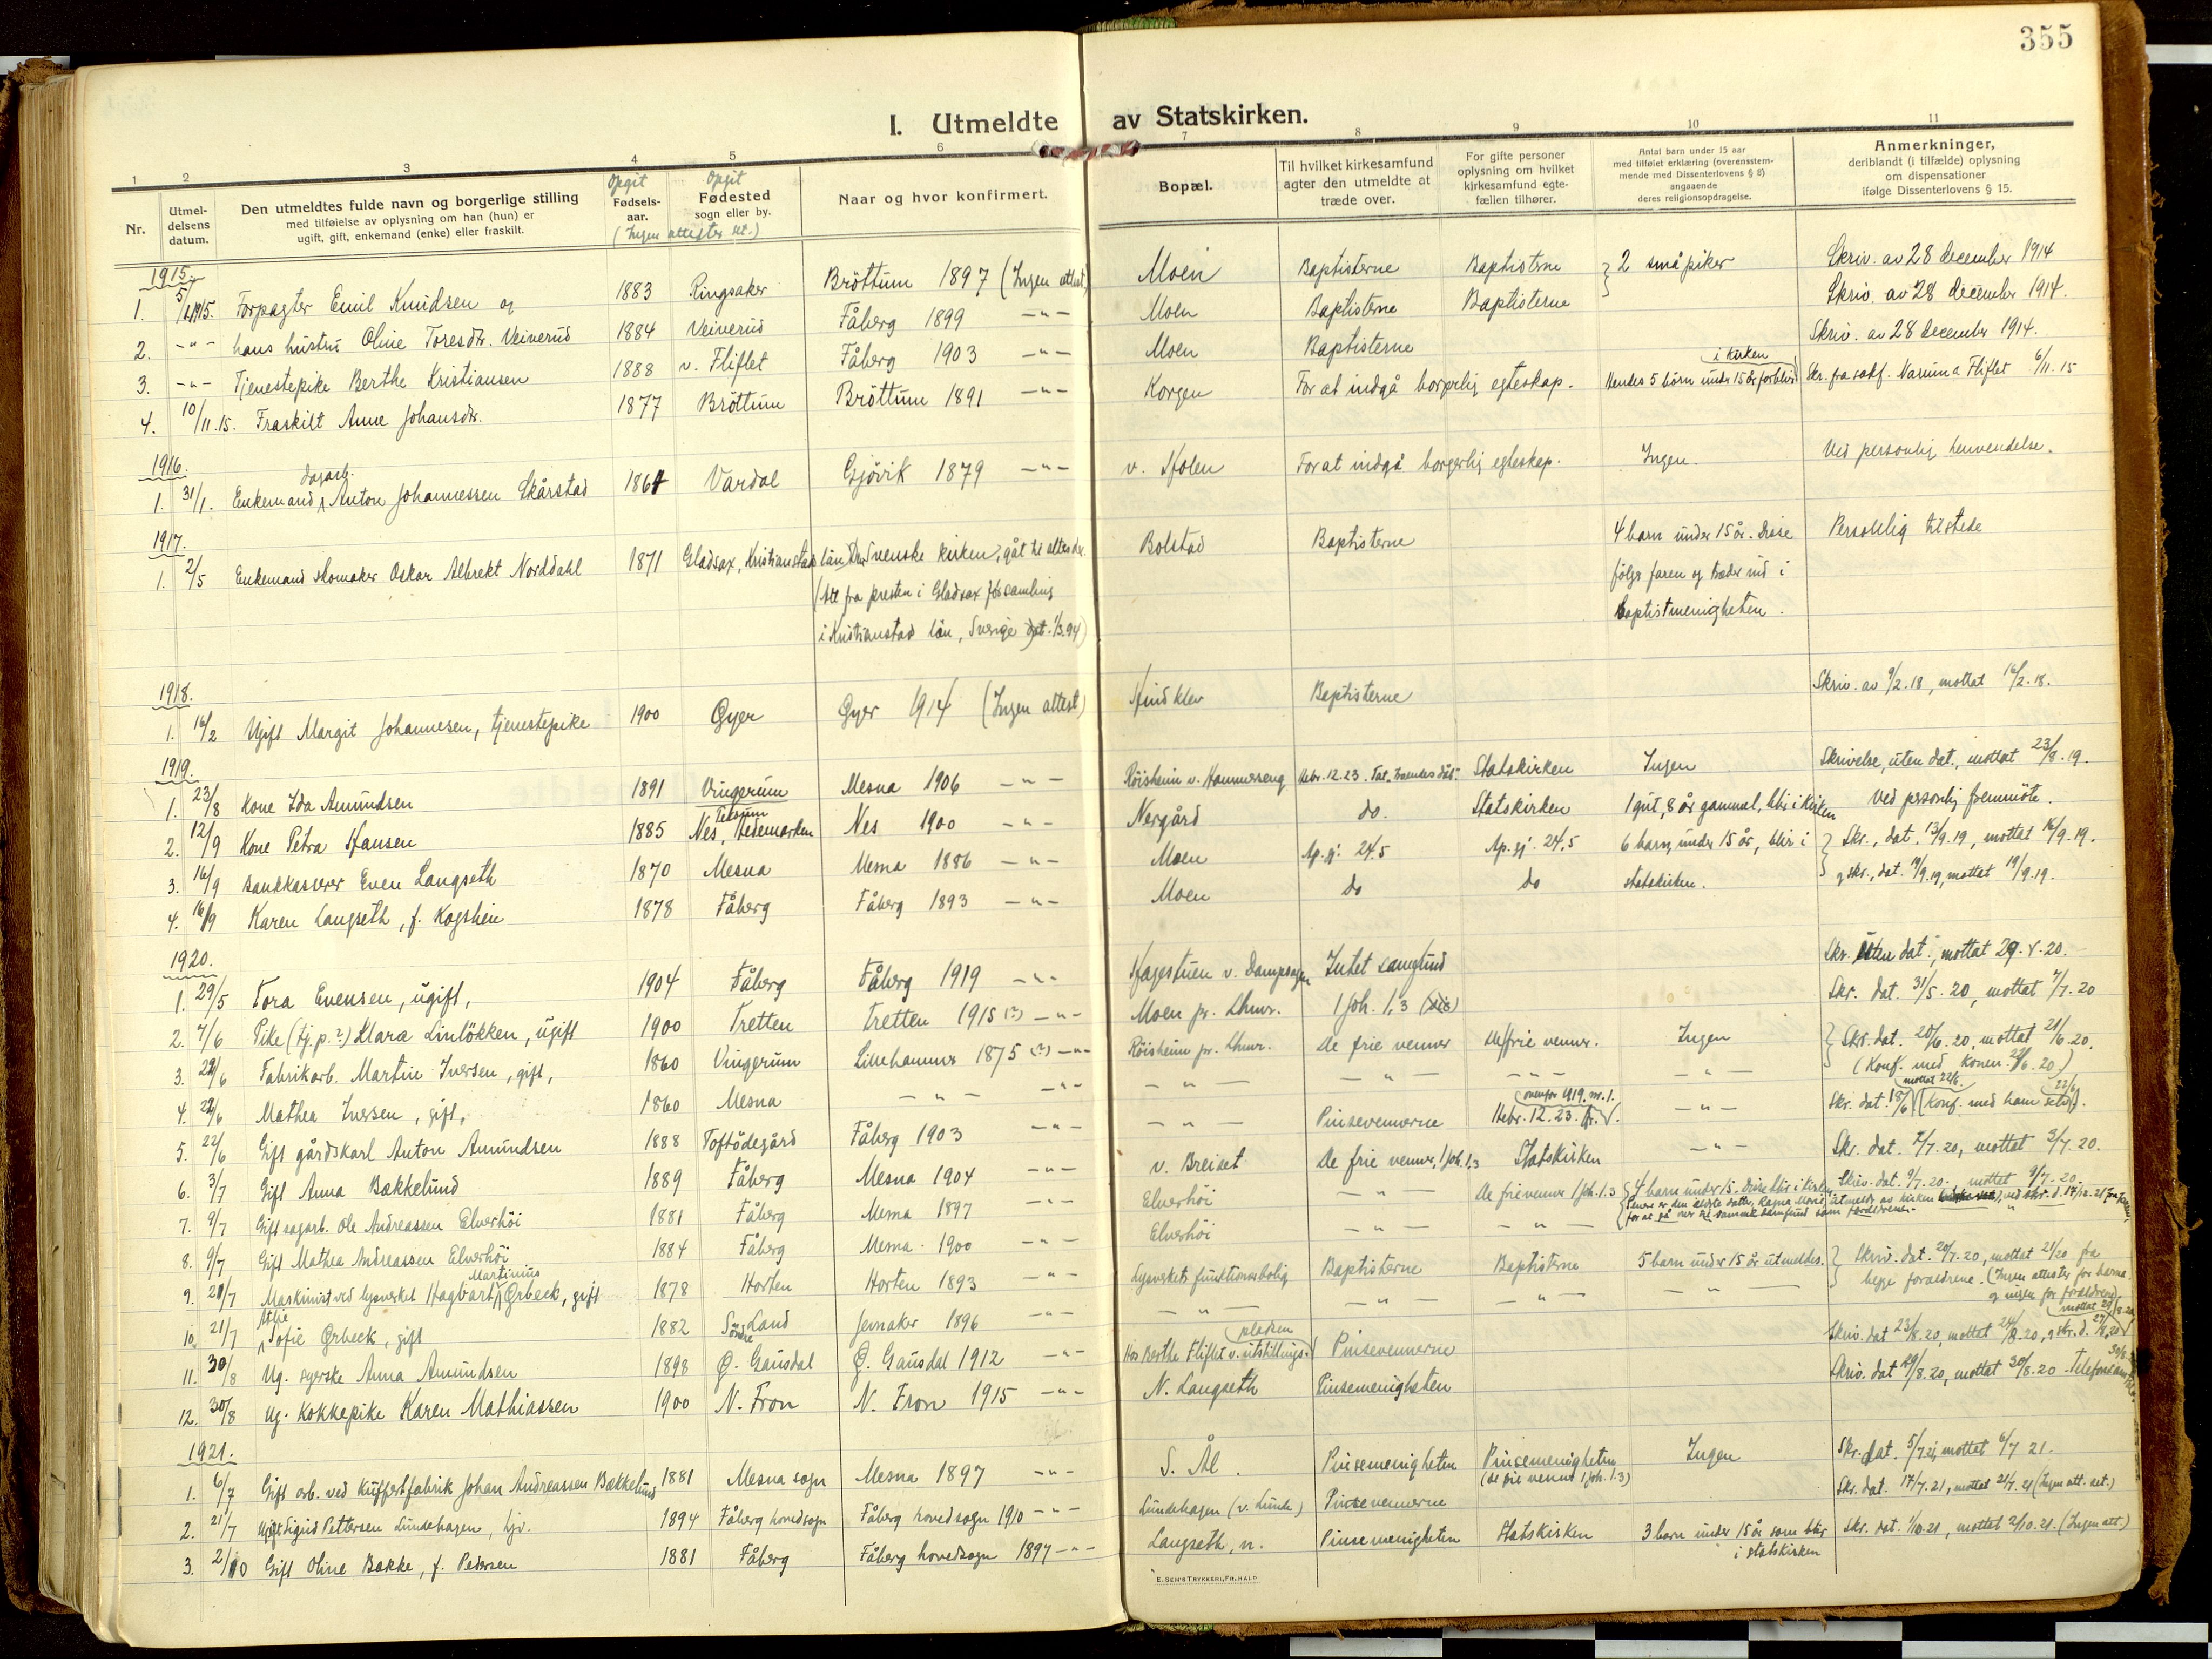 355
I. Utmeldte av Statskirken.
1 2 3 4 5 6 7 8 9 10 11
Nr.
Utmeldelsens datum.
Den utmeldtes fulde navn og borgerlige stilling
med tilføielse av oplysning om han (hun) er
ugift, gift, enkemand (enke) eller fraskilt.
Opgit
Fødselsaar.
Opgit
Fødested
sogn eller by.
(Ingen attester set.)
Naar og hvor konfirmert.
Bopæl.
Til hvilket kirkesamfund
agter den utmeldte at
træde over.
For gifte personer
oplysning om hvilket
kirkesamfund egtefællen tilhører.
Antal barn under 15 aar
med tilføiet erklæring (overensstemmende med Dissenterlovens § 8)
angaaende
deres religionsopdragelse.
Anmerkninger,
deriblandt (i tilfælde) oplysning
om dispensationer
ifølge Dissenterlovens § 15.
1915
1. 5/1 1915. Forpagter Emil Knudsen og 1883 Ringsaker Bröttum 1897 (Ingen attest) Moen Baptisterne Baptisterne } 2 små piker Skriv. av 28 december 1914
2. -"- hans hustru Oline Toresdtr. Veiverud 1884 Veiverud Fåberg 1899 -"- Moen Baptisterne Baptisterne Skriv. av 28 december 1914.
3. -"- Tjenestepike Berthe Kristiansen 1888 v. Fliflet Fåberg 1903 -"- Moen Baptisterne Skriv. av 28 december 1914.
4. 10/11.15. Fraskilt Anne Johansdtr. 1877 Bröttum Bröttum 1891 -"- Korgen For at indgå borgerlig egteskap. Hendes 5 börn under 15 år forblir i kirken Skr. fra sakf. Narum a Fliflet 6/11.15
1916.
1. 31/1. Enkemand, dagarb. Anton Johannessen Skårstad 1864 Vardal Gjövik 1879 -"- v. Stolen For at indgå borgerlig egteskap. Ingen. Ved personlig henvendelse.
1917.
1. 2/5 Enkemand skomaker Oskar Albrekt Norddahl 1871 Gladsax, Kristianstad län Den Svenske kirken, gåt til alters der. Bolstad Baptisterne 4 barn under 15 år. Disse Personlig tilstede
(Att fra presten i Gladsax församling følge faren og træder ind i
i Kristianstad län, Sverige dat. 1/3.94) Baptistmenigheten.
1918.
1. 16/2 Ugift Margit Johannesen, tjenestepike 1900 Öyer Öyer 1914 (Ingen attest) Baptisterne Skriv. av 9/2.18, mottat 16/2.18.
1919.
1. 23/8 Kone Ida Amundsen 1891 Vingerum Mesna 1906 -"- Röisheim v. Hammereng Hebr. 12.23. Statskirken Ingen Skrivelse, uten dat., mottat 23/8.19.
2. 12/9 Kone Petra Hansen 1885 Nes, Hedemarken Nes 1900 -"- Nergård do. Statskirken 1 gut, 8 år gammel, blir i kirken Ved personlig fremmöte.
3. 16/9 Bankkasserer Even Langseth 1870 Mesna Mesna 1886 -"- Moen Ap. gj. 24.5 Ap. gj. 24.5 6 barn, under 15 år, blir i } Skr., dat. 13/9.19, mottat 16/9.19.
4. 16/9 Karen Langseth, f. Kogstien 1878 Fåberg Fåberg 1893 -"- Moen do do statskirken. og skr., dat. 19/9.19, mottat 19/9.19.
1920.
1. 29/5 Tora Evensen, ugift, 1904 Fåberg Fåberg 1919 -"- Hagestuen v. Dampsagen Intet samfund Skr. uten dat., mottat 29.5.20.
2. 7/6 Pike (tj.p.?) Klara Linlökken, ugift 1900 Tretten Tretten 1915 (?) -"- Moen pr. Lhmr. 1 Joh. 1,3 Skr. dat. 31/5.20, mottat 7/7.20
3. 22/6 Fabrikarb. Martin Iversen, gift, 1860 Vingerum Lillehammer 1875 (?) -"- Röisheim pr. Lhmr. De frie venner De frie venner. Ingen } Skr. dat. 20/6.20, mottat 21/6.20.
4. 22/6 Mathea Iversen, gift, 1860 Mesna -"- -"- -"- -"- -"- -"- (Konf. med konen 22/6.20)
5. 22/6 Gift gårdskarl Anton Amundsen 1888 Toftödegård Fåberg 1903 -"- -"- Pinsevennerne Hebr. 12.23. ovenfor 1919, nr. 1. -"- Skr. dat. 18/6 mottat 22/6. (Konf. med ham selv 22/6).
6. 3/7 Gift Anna Bakkelund 1889 Fåberg Mesna 1904 -"- v. Breiset De frie venner, 1 Joh. 1,3 Statskirken -"- Skr. dat. 2/7.20, mottat 3/7.20.
7. 9/7 Gift sagarb. Ole Andreassen Elverhöi 1881 Fåberg Mesna 1897 -"- Elverhöi -"- De frie venner 1 Joh. 1.3 4 barn under 15. Disse blir i kirken. Skriv. dat. 9/7.20. mottat 9/7.20.
8. 9/7 Gift Mathea Andreassen Elverhöi 1884 Fåberg Mesna 1900 -"- Elverhöi -"- -"- for at gå over til samme samfund som forældrene.
9. 21/7 Maskinist ved lysverket Hagbart Martinius Ørbeck, gift 1878 Horten Horten 1893 -"- Lysverkets funktionærbolig Baptisterne Baptisterne 5 barn under 15 år utmeldes. } Skriv. dat. 20/7.20, mottat 21/20 fra
10. 21/7 Sofie Ørbeck, gift 1882 Söndre Land Jevnaker 1896 -"- -"- -"- -"- -"- begge forældrene. (Ingen attester for barna og ingen for forældrene).
11. 30/8 Ug. syerske Anna Amundsen 1898 Ø. Gausdal Ø. Gausdal 1912 -"- Hos Berthe Fliflet v. utstillingspladsen Pinsevennerne Skriv. dat 23/8.20, mottat 24/8.20, og skr. d. 27/8.20
12. 30/8 Ug. Kokkepike Karen Mathiassen 1900 N. Fron N. Fron 1915 -"- N. Langseth Pinsemenigheten Skriv. dat 29/8.20, mottat 30/8.20.
1921.
1. 6/7 Gift arb. ved kuffertfabrik Johan Andreassen Bakkelund 1881 Mesna sogn Mesna 1897 -"- S. Ål. Pinsemenigheten Pinsemenigheten (de frie venner 1 Joh. 1.3) Ingen Skr. dat. 5/7.21, mottat 6/7 21.
2. 21/7 Ugift Sigrid Pettersen Lundehagen, tj. 1894 Fåberg hovedsogn Fåberg hovedsogn 1910 -"- Lundehagen (v. Lunde) Pinsevennerne Skr. dat. 17/7.21, mottat 21/7.21 (Ingen att. set.)
3. 2/10 Gift Oline Bakke, f. Pedersen 1881 Fåberg Fåberg hovedsogn 1897 -"- Langseth, n. Pinsemenigheten Statskirken 3 barn under 15 år som blir i statskirken Skr. dat. 1/10.21, mottat 2/10.21. (Ingen att.)
E. SEM'S TRYKKERI, FR.HALD